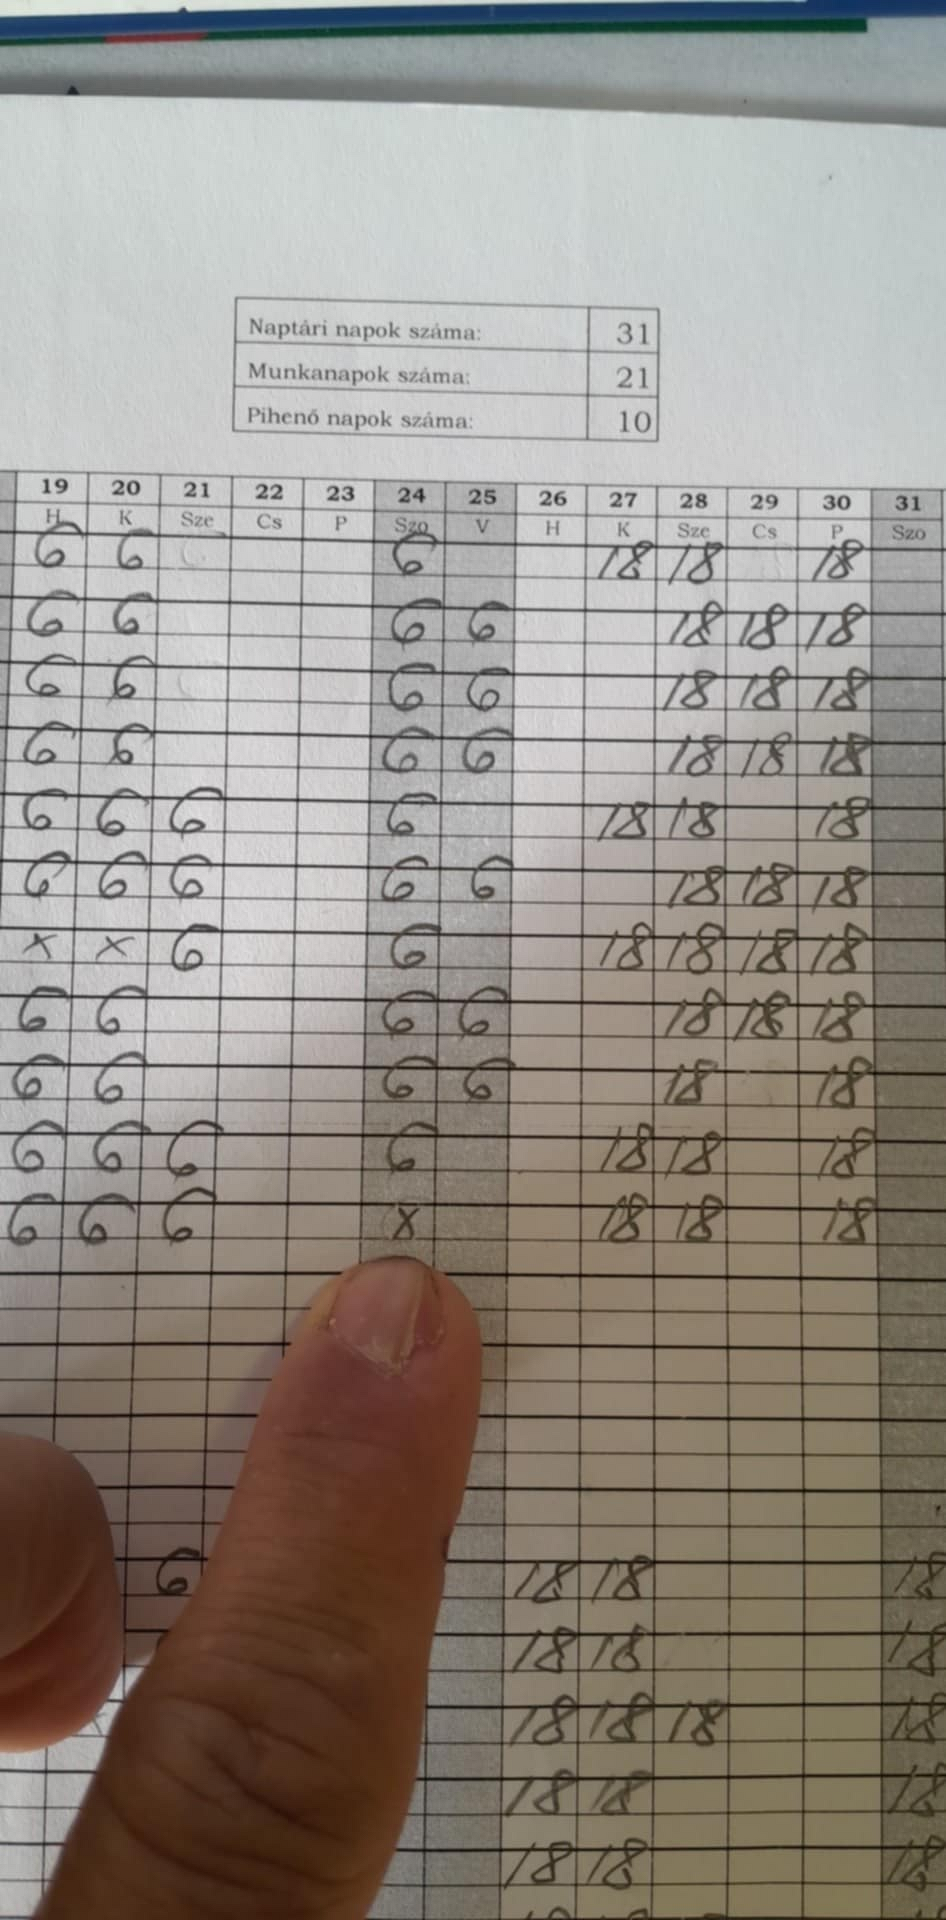 Naptári napok száma: 31
Munkanapok száma: 21
Pihenő napok száma: 10
19 20 21 22 23 24 25 26 27 28 29 30 31
H K Sze Cs P Szo V H K Sze Cs P Szo
6 6 6 18 18 18
6 6 6 6 18 18 18
6 6 6 6 18 18 18
6 6 6 6 18 18 18
6 6 6 6 18 18 18
6 6 6 6 6 18 18 18
x x 6 6 18 18 18 18
6 6 6 6 18 18 18
6 6 6 6 18 18
6 6 6 6 18 18 18
6 6 6 x 18 18 18
6 18 18 18
18 18 18
18 18 18 18
18 18 18
18 18 18